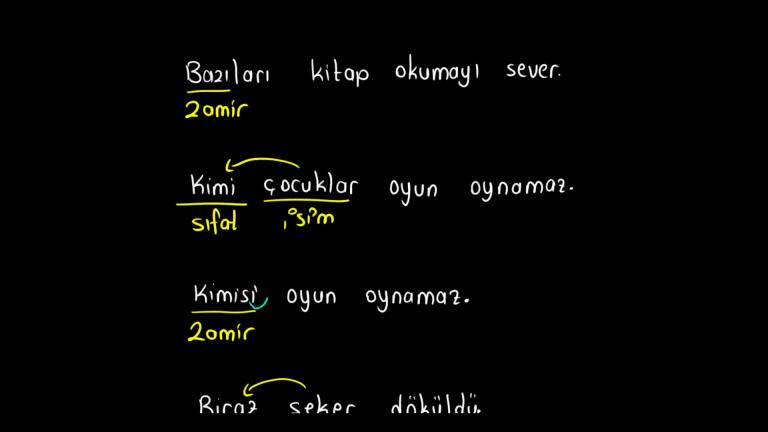 Bazıları kitap okumayı sever.
zamir
Kimi çocuklar oyun oynamaz.
sıfat isim
Kimisi oyun oynamaz.
zamir
Biraz şeker döküldü.